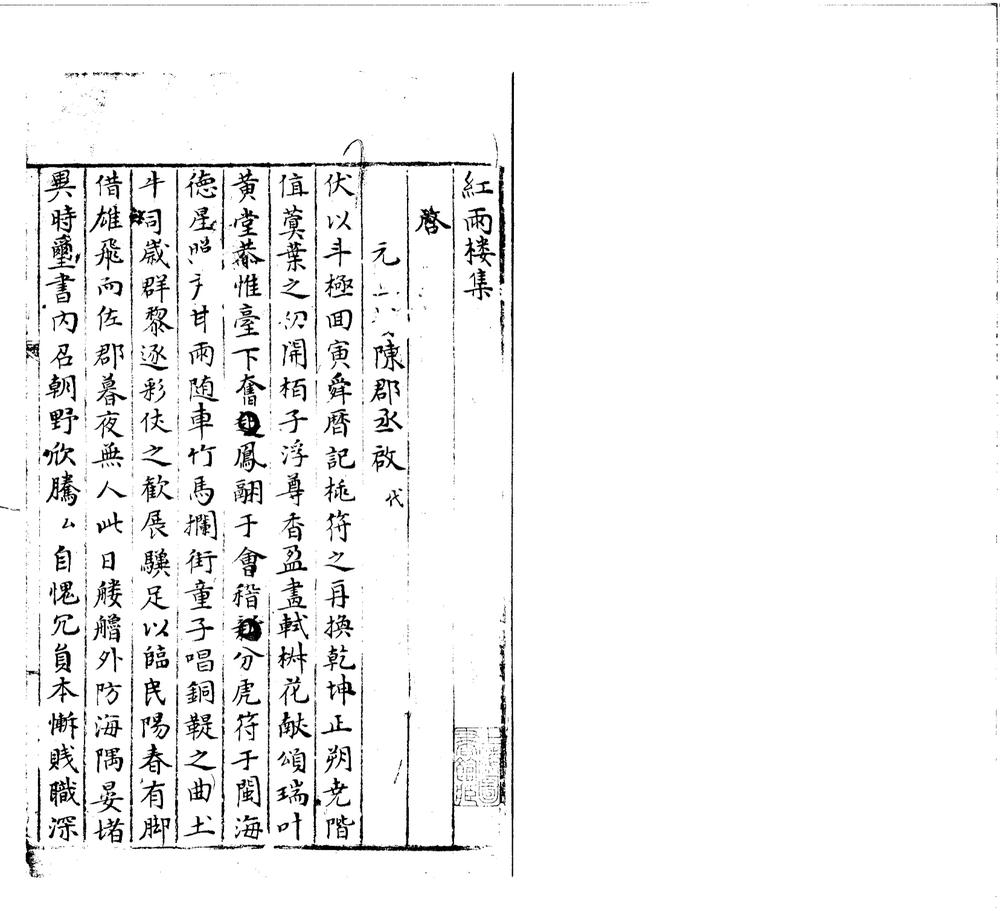 紅雨楼集
啓
元 陳郡丞啟 代
伏以斗極回寅舜曆記桃符之再換乾坤正朔尭階
值蓂葉之初開栢子浮尊香盈畫軾椒花献頌瑞叶
黄堂恭惟臺下奮 鳳翮于會稽 分虎符于閩海
德星昭 甘雨随車竹馬攔街童子唱銅鞮之曲土
牛司歲群黎逐彩仗之歓展驥足以臨民陽春有脚
借雄飛而佐郡暮夜無人此日艛艪外防海隅晏堵
異時璽書内召朝野欣騰厶自愧冗負本慚賤職深